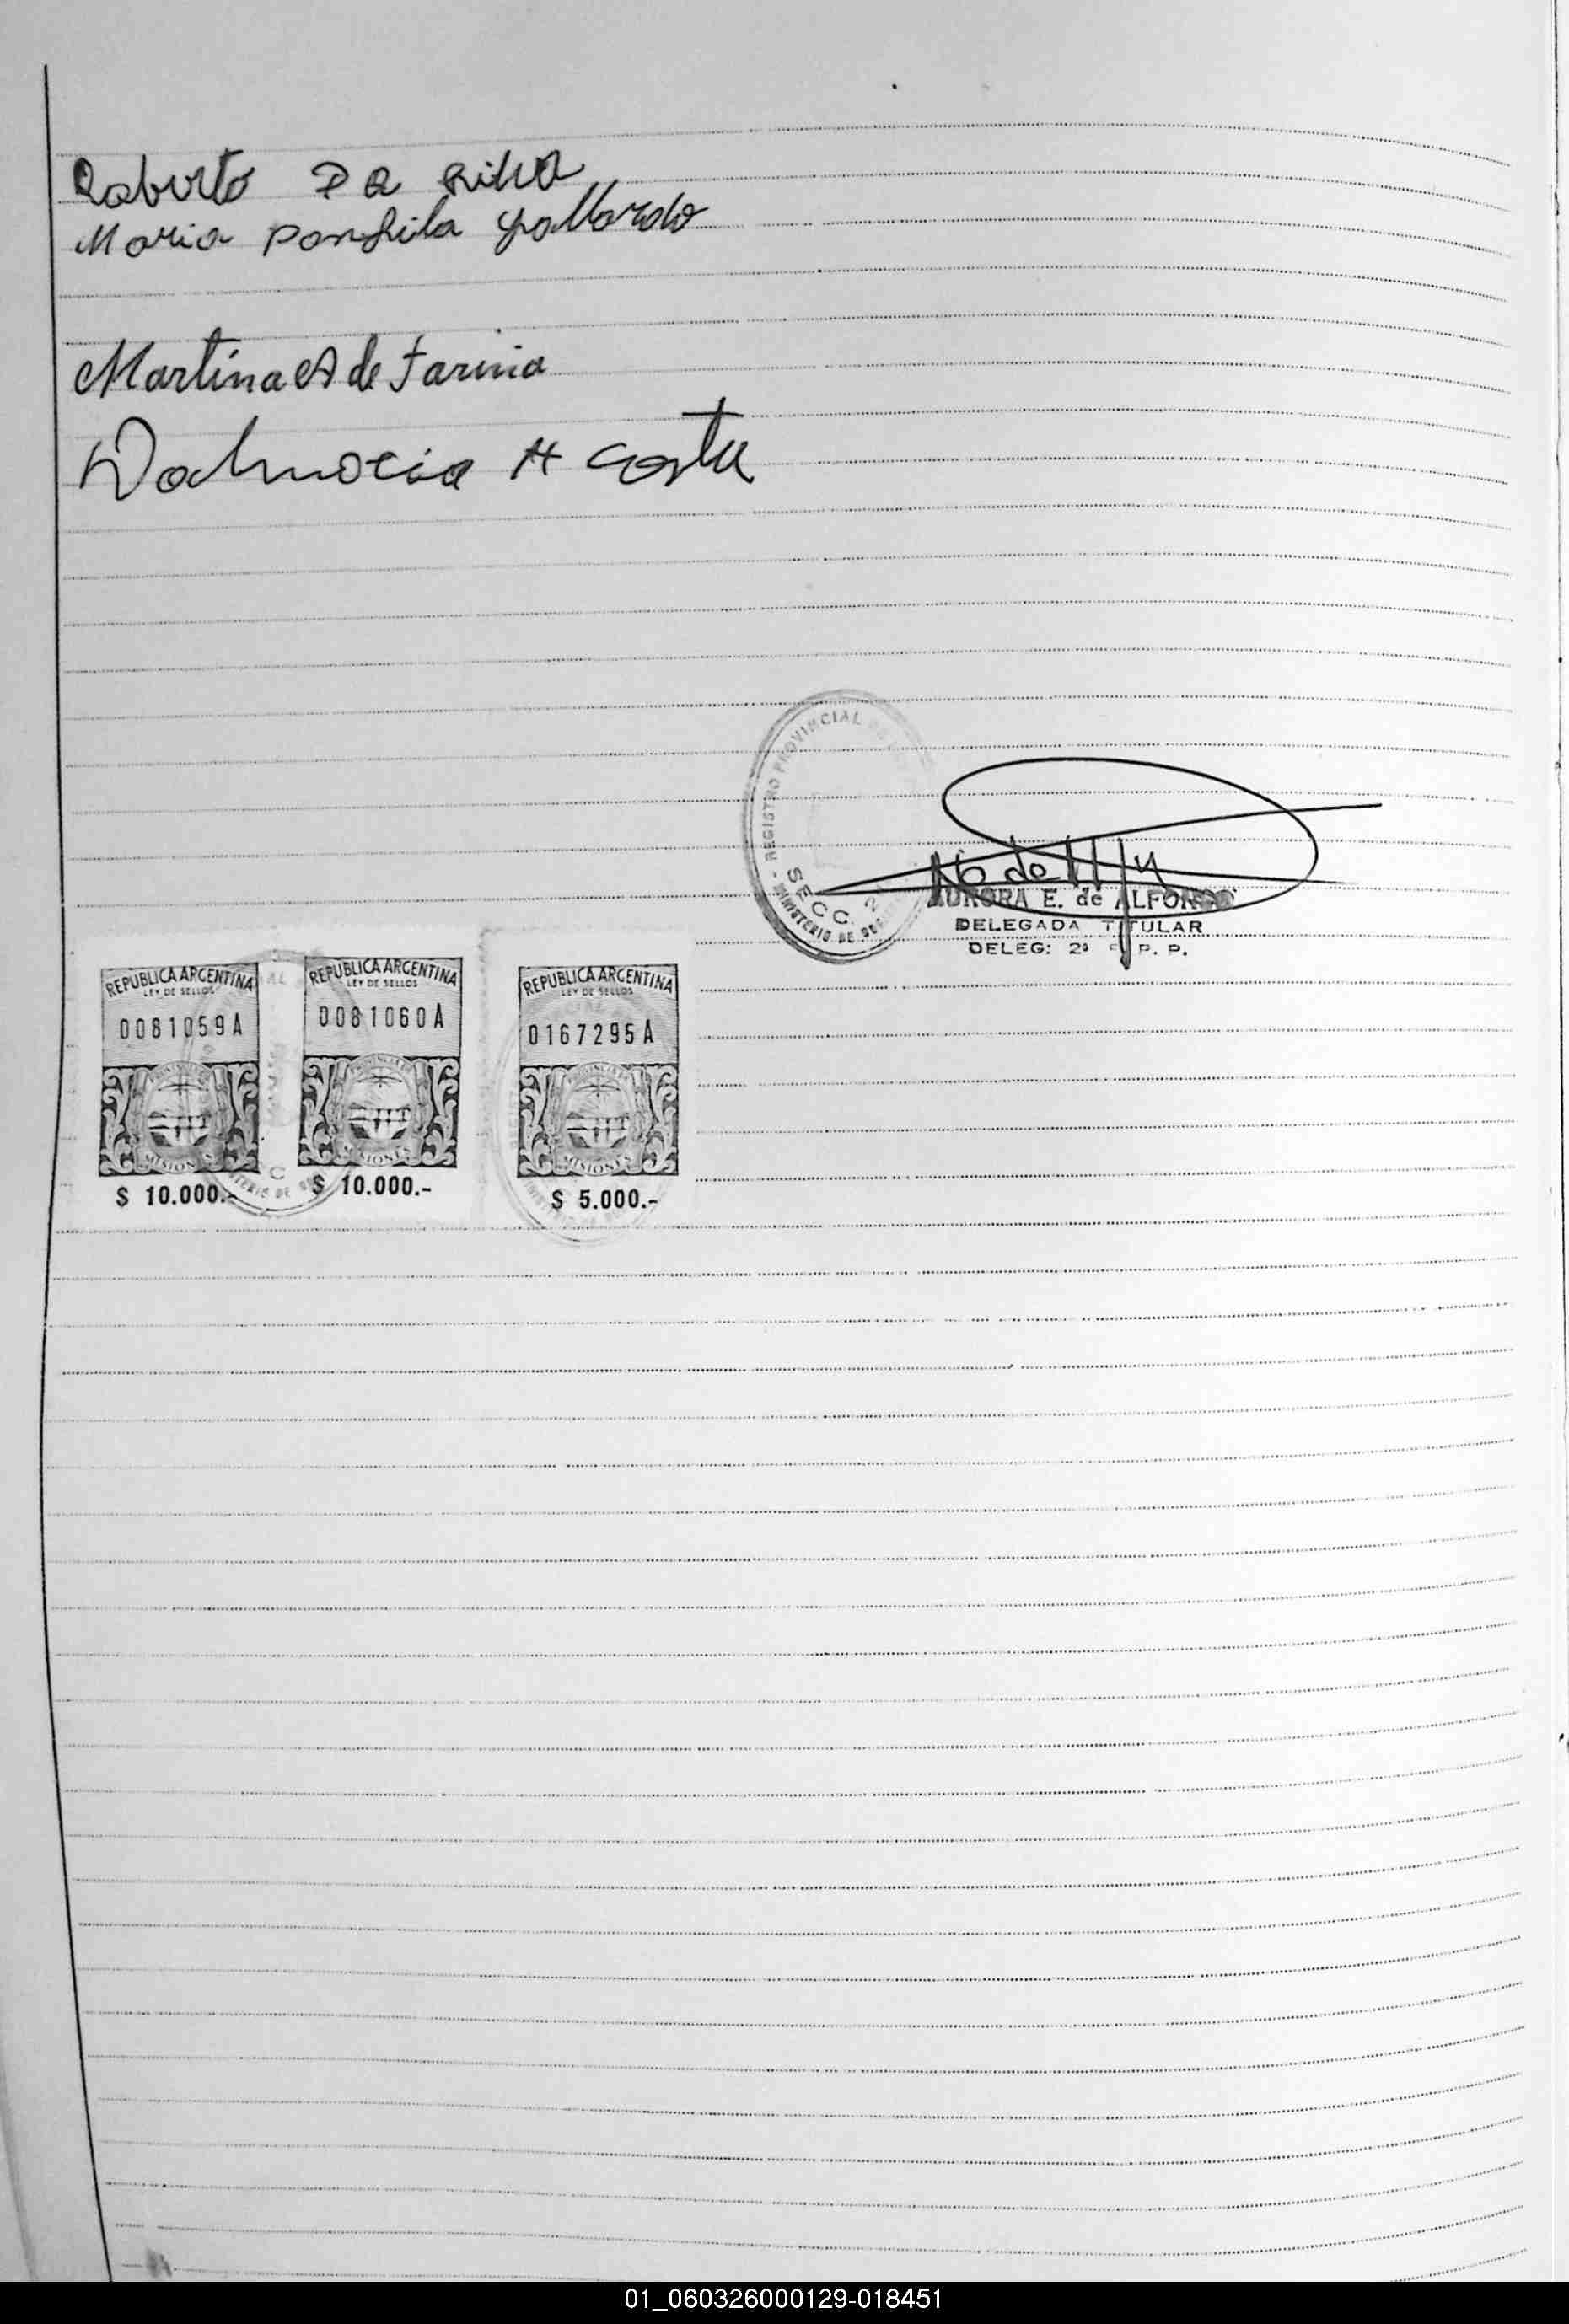 Roberto Da Silva
Maria Panfila Gallardo
Martina A de Farina
Dalmacia A Costa
- REGISTRO PROVINCIAL DE
SECC. 2
MINISTERIO DE
AURORA E. de ALFONSO
DELEGADA TITULAR
DELEG: 2ª R. P. P.
REPUBLICA ARGENTINA
LEY DE SELLOS
0081059A
MISIONES
$ 10.000.-
REPUBLICA ARGENTINA
LEY DE SELLOS
0081060A
MISIONES
$ 10.000.-
REPUBLICA ARGENTINA
LEY DE SELLOS
0167295A
MISIONES
$ 5.000.-
01_060326000129-018451